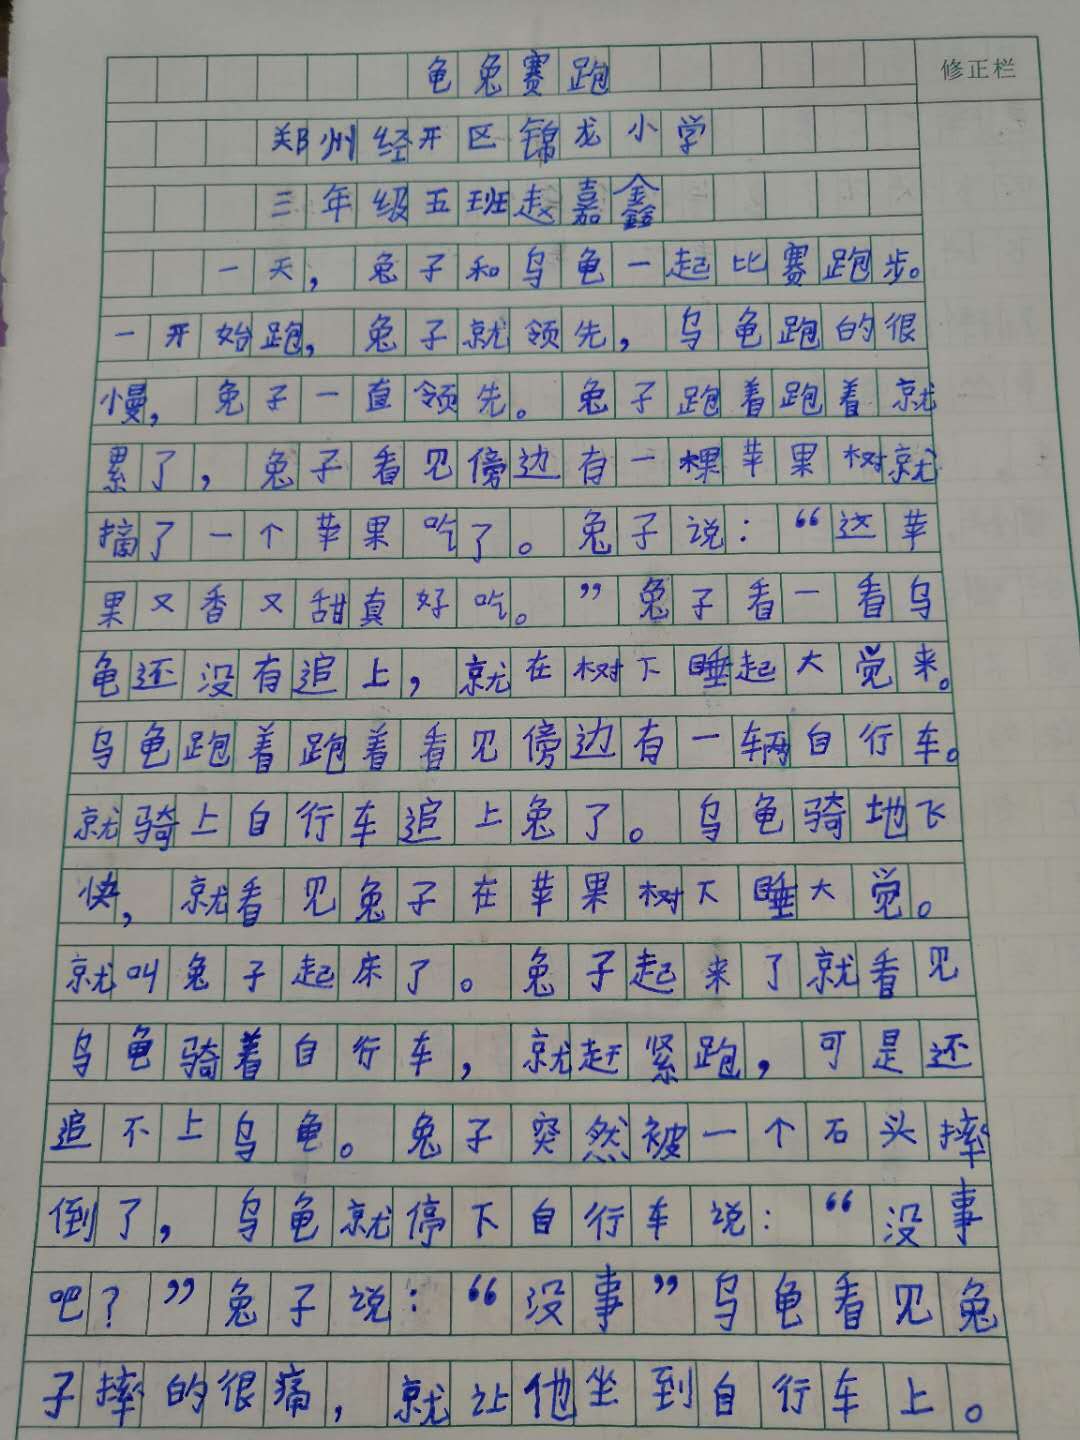 龟兔赛跑
修正栏
郑州经开区锦龙小学
三年级五班赵嘉鑫
一天，兔子和乌龟一起比赛跑步。
一开始跑，兔子就领先，乌龟跑的很
慢，兔子一直领先。兔子跑着跑着就
累了，兔子看见傍边有一棵苹果树就
摘了一个苹果吃了。兔子说：“这苹
果又香又甜真好吃。”兔子看一看乌
龟还没有追上，就在树下睡起大觉来。
乌龟跑着跑着看见傍边有一辆自行车。
就骑上自行车追上兔了。乌龟骑地飞
快，就看见兔子在苹果树下睡大觉。
就叫兔子起床了。兔子起来了就看见
乌龟骑着自行车，就赶紧跑，可是还
追不上乌龟。兔子突然被一个石头摔
倒了，乌龟就停下自行车说：“没事
吧？”兔子说：“没事”乌龟看见兔
子摔的很痛，就让他坐到自行车上。